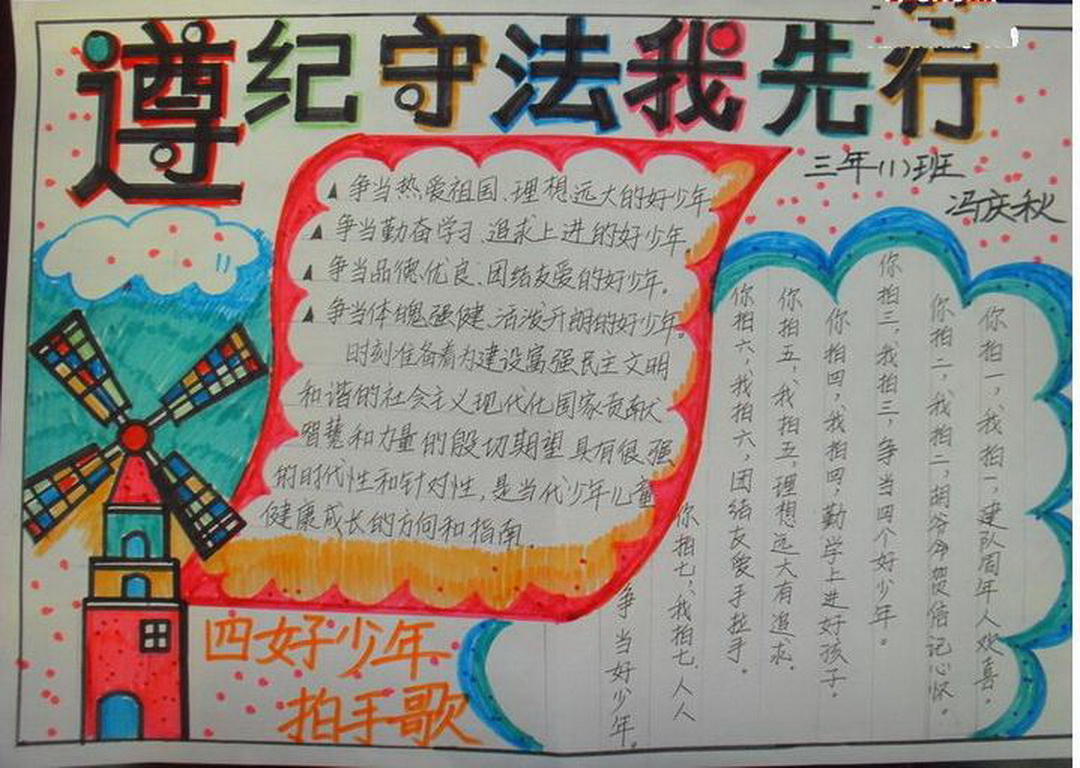 遵纪守法我先行
三年(1)班
冯庆秋
▲争当热爱祖国、理想远大的好少年
▲争当勤奋学习、追求上进的好少年。
▲争当品德优良、团结友爱的好少年。
▲争当体魄强健、活泼开朗的好少年。
时刻准备着为建设富强民主文明
和谐的社会主义现代化国家贡献
智慧和力量的殷切期望具有很强
的时代性和针对性,是当代少年儿童
健康成长的方向和指南。
四好少年
拍手歌
你拍一,我拍一,建队周年人欢喜。
你拍二,我拍二,胡爷爷贺信记心怀。
你拍三,我拍三,争当四个好少年。
你拍四,我拍四,勤学上进好孩子。
你拍五,我拍五,理想远大有追求。
你拍六,我拍六,团结友爱手拉手。
你拍七,我拍七,人人
争当好少年。